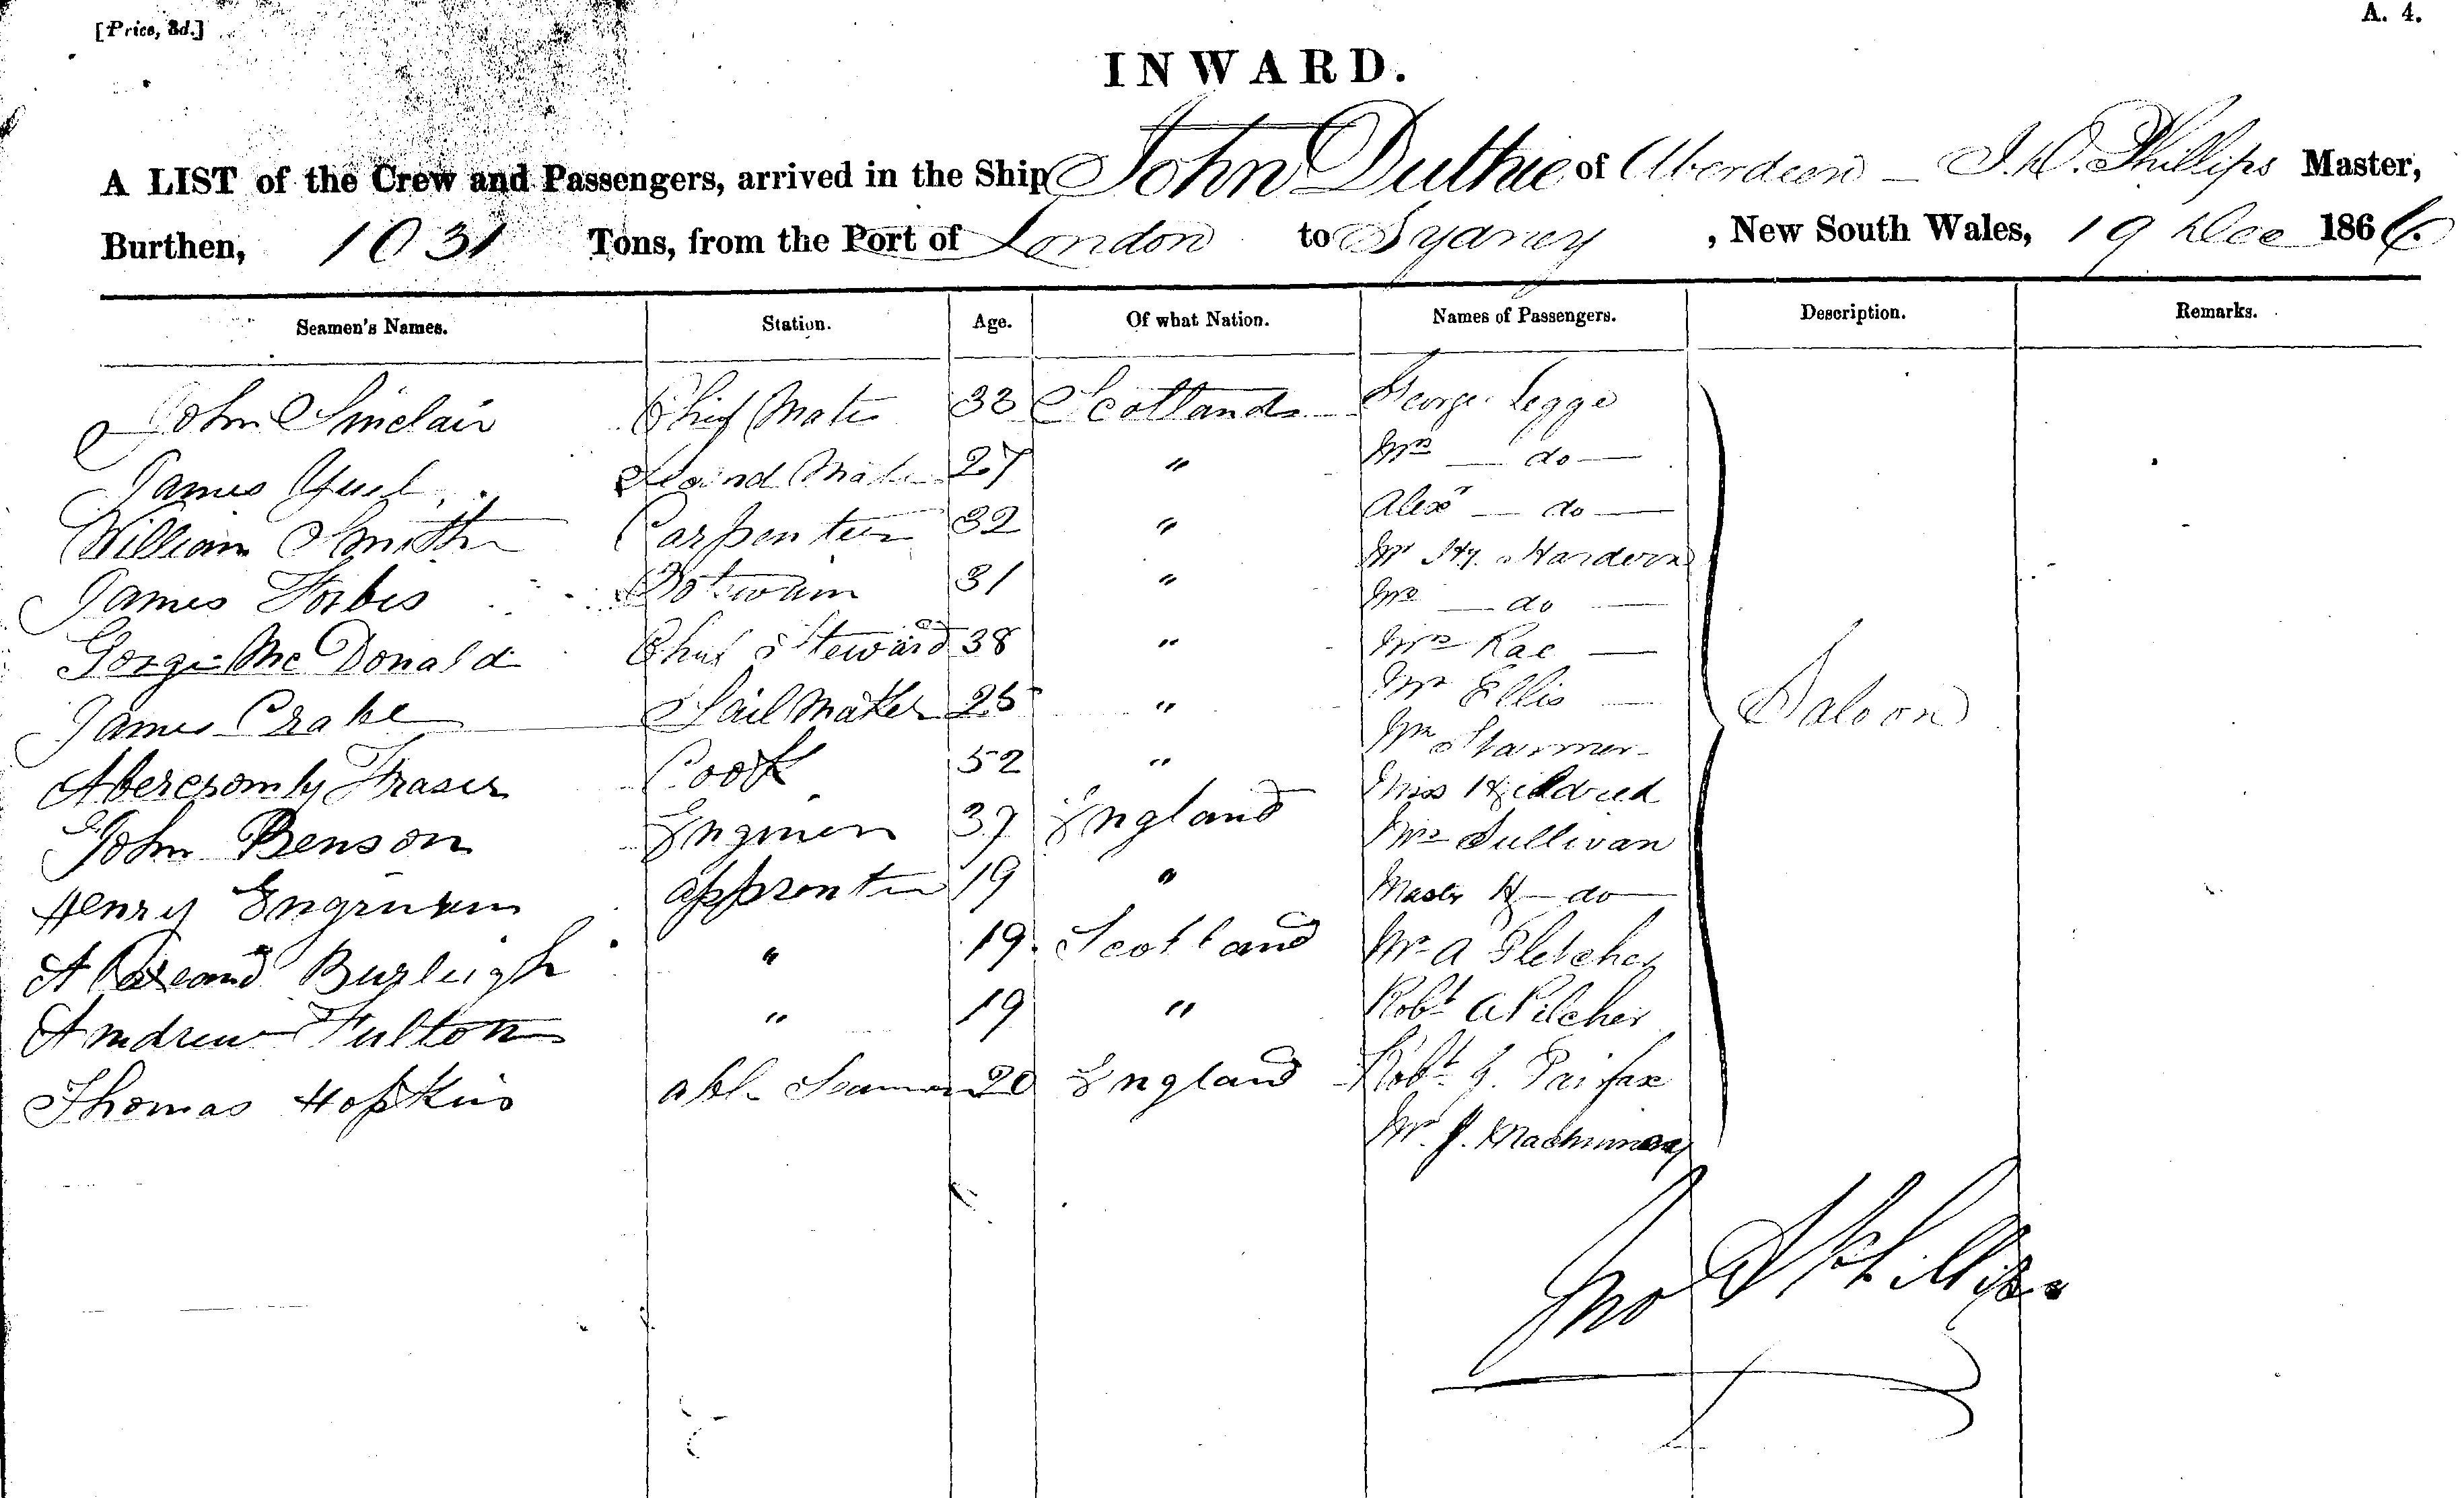 [Price, 3d.]
A. 4.
INWARD.
A LIST of the Crew and Passengers, arrived in the Ship John Duthie of Aberdeen - J. D. Phillips Master,
Burthen, 1031 Tons, from the Port of London to Sydney, New South Wales, 19 Dec 1866.
Seamen's Names. Station. Age. Of what Nation. Names of Passengers. Description. Remarks.
John Sinclair Chief Mate 33 Scotland George Legge
James Second Mate 27 " Mrs — do —
William Smith Carpenter 32 " Alexr — do —
Mr Hy. Hardern
James Forbis Botswain 31 " Mrs — do —
Gorge Mc Donald Chief Steward 38 " Mrs Rae —
James Crake Sail Maker 25 " Mr Ellis —
Abercromby Fraser Cook 52 " Mr
Miss Hildred
John Benson 37 England Mrs Sullivan
Henry 19 " Master H — do —
Burleigh " 19 Scotland Mr A Fletcher
Andrew Fulton " 19 " Robt A Pilcher
Thomas Hopkins abl Seaman 20 England Robt Fairfax
Mr J.
Saloon
Jno D Phillips